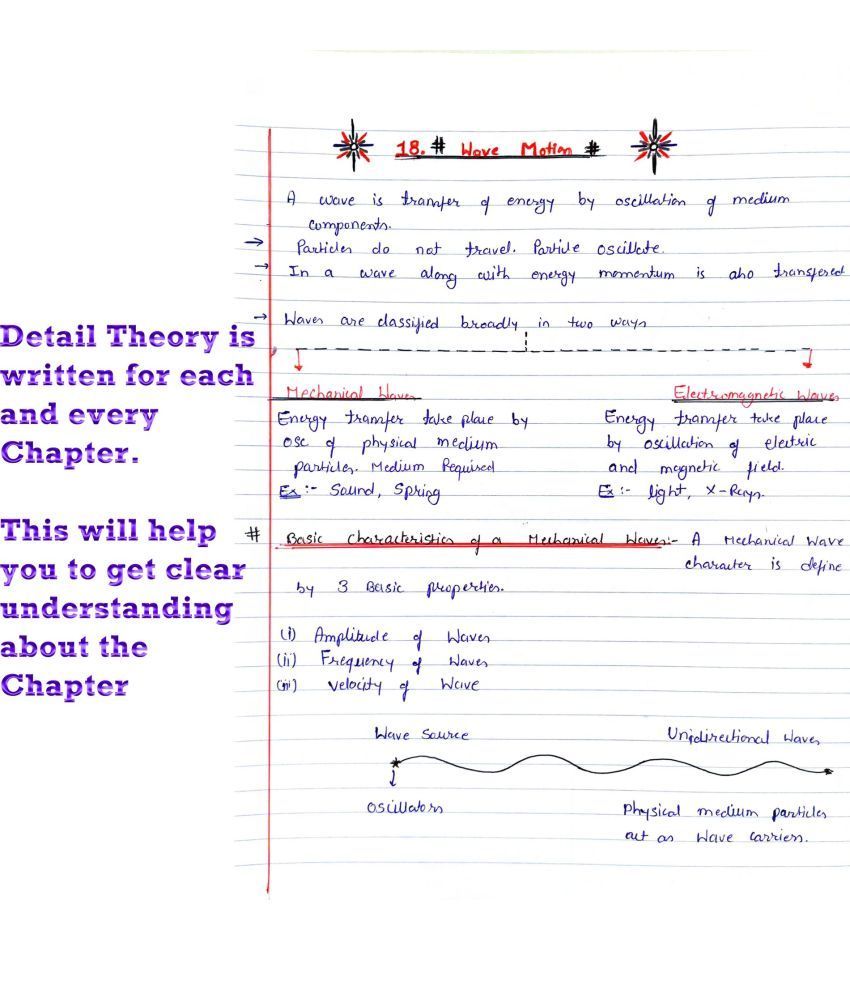 18. # Wave Motion #
A wave is tranfer of energy by oscillation of medium
components.
→ Particles do not travel. Particle oscillate.
→ In a wave along with energy momentum is also transfered
→ Waves are classified broadly in two ways
Mechanical Waves
Energy tranfer take place by
osc of physical medium
particles. Medium Required
Ex :- Sound, Spring
Electromagnetic Waves
Energy tranfer take place
by oscillation of electric
and magnetic field.
Ex :- light, X-Rays.
# Basic characteristics of a Mechanical Waves:- A Mechanical Wave
character is define
by 3 Basic properties.
(i) Amplitude of Waves
(ii) Frequency of Waves
(iii) Velocity of Wave
Wave Source
Unidirectional Waves
Oscillators
Physical medium particles
act as Wave carriers.
Detail Theory is
written for each
and every
Chapter.
This will help
you to get clear
understanding
about the
Chapter